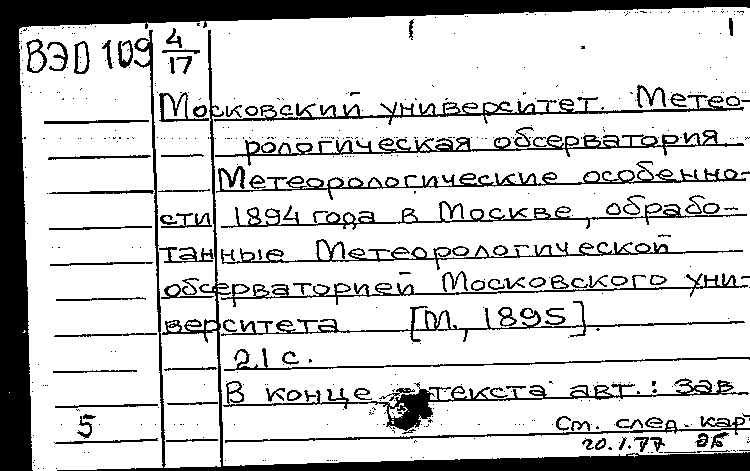 ВЭО 109 4/17
Московский университет. Метео-
рологическая обсерватория
Метеорологические особенно-
сти 1894 года в Москве, обрабо-
танные Метеорологической
обсерваторией Московского уни-
верситета [М., 1895].
21 с.
В конце текста авт.: Зав
5
См. след. карт
20.1.77